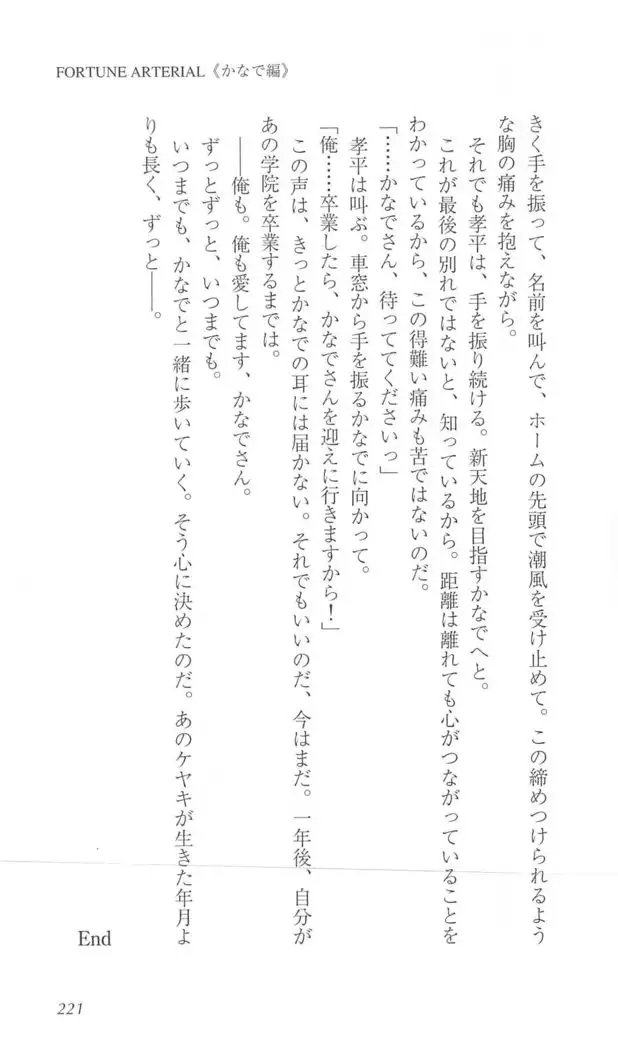 FORTUNE ARTERIAL《かなで編》
きく手を振って、名前を叫んで、ホームの先頭で潮風を受け止めて。この締めつけられるよう
な胸の痛みを抱えながら。
それでも孝平は、手を振り続ける。新天地を目指すかなでへと。
これが最後の別れではないと、知っているから。距離は離れても心がつながっていることを
わかっているから、この得難い痛みも苦ではないのだ。
「……かなでさん、待っててくださいっ」
孝平は叫ぶ。車窓から手を振るかなでに向かって。
「俺……卒業したら、かなでさんを迎えに行きますから！」
この声は、きっとかなでの耳には届かない。それでもいいのだ、今はまだ。一年後、自分が
あの学院を卒業するまでは。
――俺も。俺も愛してます、かなでさん。
ずっとずっと、いつまでも。
いつまでも、かなでと一緒に歩いていく。そう心に決めたのだ。あのケヤキが生きた年月よ
りも長く、ずっと――。
End
221